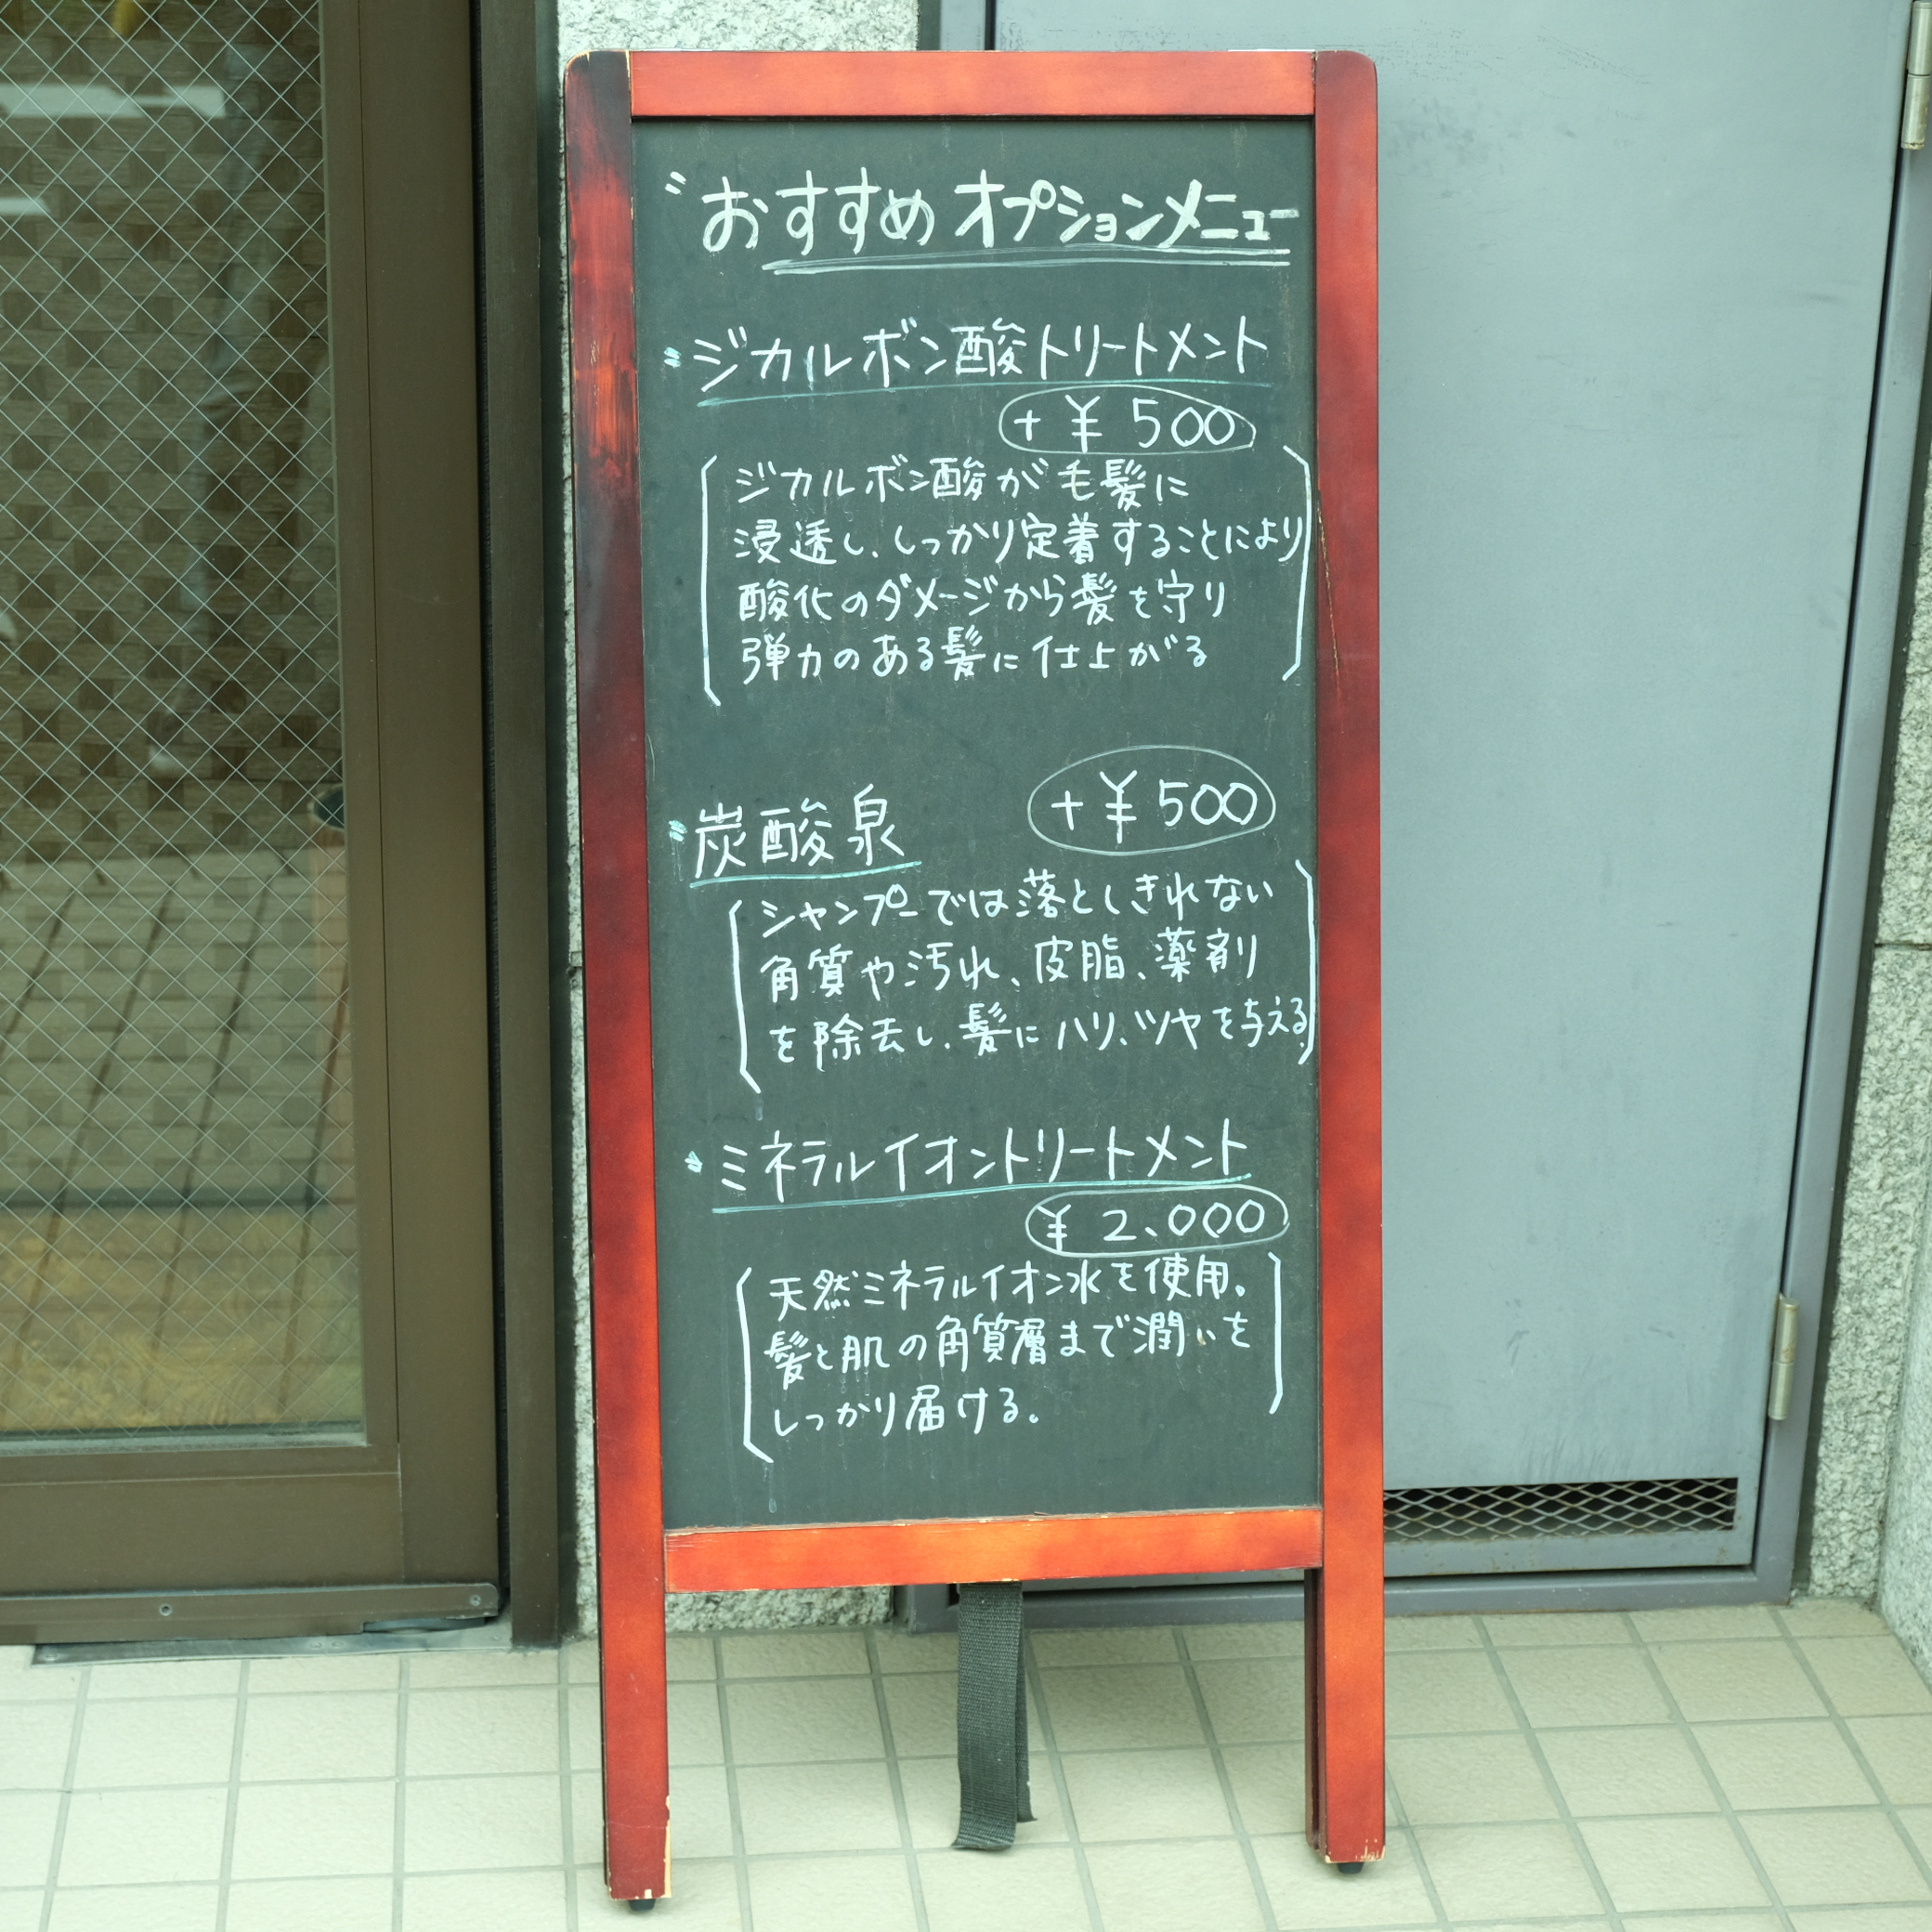 "おすすめオプションメニュー
"ジカルボン酸トリートメント
+¥500
ジカルボン酸が毛髪に
浸透し、しっかり定着することにより
酸化のダメージから髪を守り
弾力のある髪に仕上がる
"炭酸泉 +¥500
シャンプーでは落としきれない
角質や汚れ、皮脂、薬剤
を除去し、髪にハリ、ツヤを与える。
"ミネラルイオントリートメント
¥2,000
天然ミネラルイオン水を使用。
髪と肌の角質層まで潤いを
しっかり届ける。